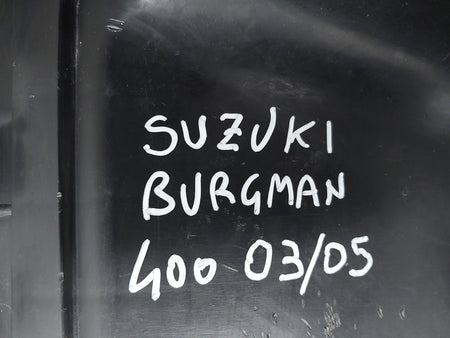 SUZUKI
BURGMAN
400 03/05